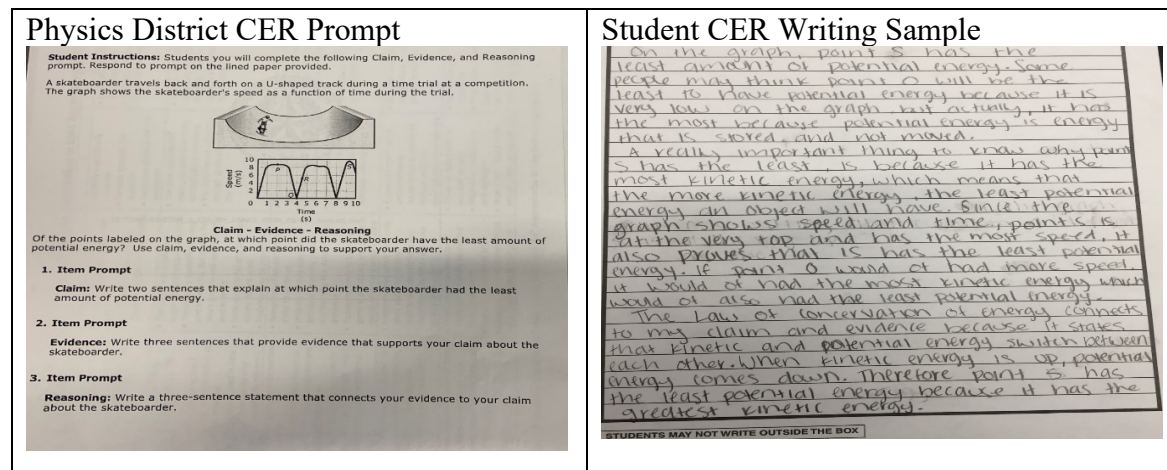 Physics District CER Prompt
Student Instructions: Students you will complete the following Claim, Evidence, and Reasoning
prompt. Respond to prompt on the lined paper provided.
A skateboarder travels back and forth on a U-shaped track during a time trial at a competition.
The graph shows the skateboarder's speed as a function of time during the trial.
10
8
6
4
2
Speed
(m/s)
P
R
S
0 1 2 3 4 5 6 7 8 9 10
Time
(s)
Claim - Evidence - Reasoning
Of the points labeled on the graph, at which point did the skateboarder have the least amount of
potential energy? Use claim, evidence, and reasoning to support your answer.
1. Item Prompt
Claim: Write two sentences that explain at which point the skateboarder had the least
amount of potential energy.
2. Item Prompt
Evidence: Write three sentences that provide evidence that supports your claim about the
skateboarder.
3. Item Prompt
Reasoning: Write a three-sentence statement that connects your evidence to your claim
about the skateboarder.
Student CER Writing Sample
On the graph, point S has the
least amount of potential energy. Some
people may think point O will be the
least to have potential energy because it is
very low on the graph but actually, it has
the most because potential energy is energy
that is stored and not moved.
A really important thing to know why point
S has the least, is because it has the
most kinetic energy, which means that
the more kinetic energy, the least potential
energy an object will have. Since the
graph shows speed and time, point S is
at the very top and has the most speed, it
also proves that is has the least potential
energy. If point O would of had more speed,
it would of had the most kinetic energy which
would of also had the least potential energy.
The Law of Concervation of Energy connects
to my claim and evidence because it states
that kinetic and potential energy switch between
each other. When kinetic energy is up, potential
energy comes down. Therefore point S has
the least potential energy because it has the
greatest kinetic energy.
STUDENTS MAY NOT WRITE OUTSIDE THE BOX